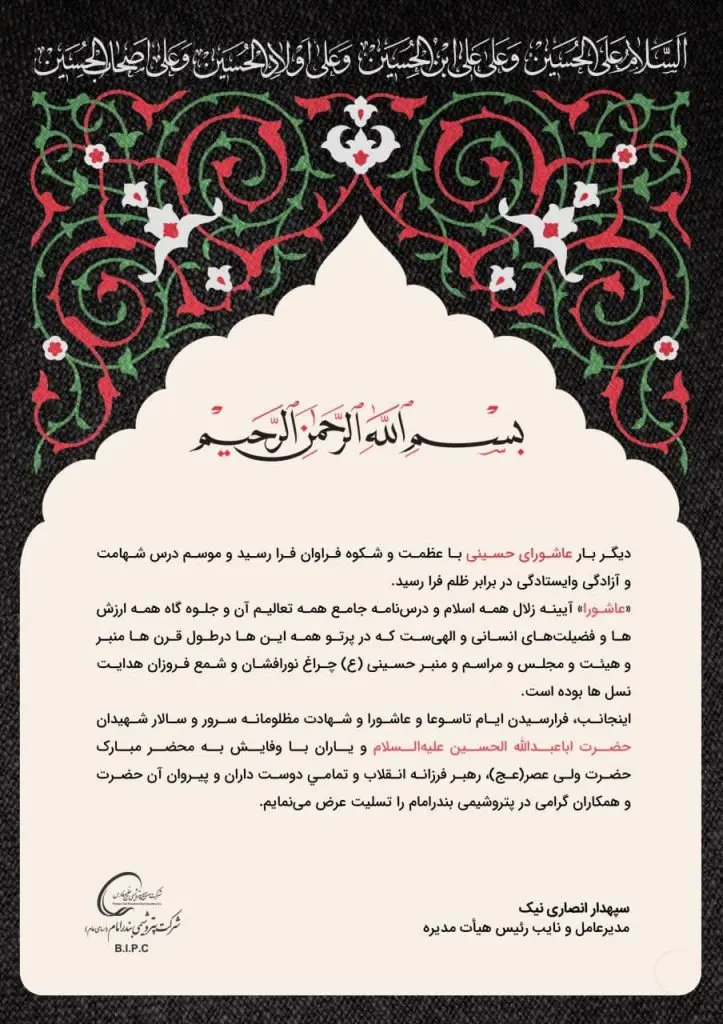 السَّلامُ عَلَى الحُسَين وَعَلى عَلِىِّ ابْنِ الحُسَين وَعَلى اَولادِ الحُسَين وَعَلى اَصحابِ الحُسَين
بسم الله الرحمن الرحيم
دیگر بار عاشورای حسینی با عظمت و شکوه فراوان فرا رسید و موسم درس شهامت
و آزادگی وایستادگی در برابر ظلم فرا رسید.
«عاشورا» آیینه زلال همه اسلام و درس‌نامه جامع همه تعالیم آن و جلوه گاه همه ارزش
ها و فضیلت‌های انسانی و الهی‌ست که در پرتو همه این ها درطول قرن ها منبر
و هیئت و مجلس و مراسم و منبر حسینی (ع) چراغ نورافشان و شمع فروزان هدایت
نسل ها بوده است.
اینجانب، فرارسیدن ایام تاسوعا و عاشورا و شهادت مظلومانه سرور و سالار شهیدان
حضرت اباعبدالله الحسین علیه‌السلام و یاران با وفایش به محضر مبارک
حضرت ولی عصر(عج)، رهبر فرزانه انقلاب و تمامي دوست داران و پیروان آن حضرت
و همکاران گرامی در پتروشیمی بندرامام را تسلیت عرض می‌نمایم.
سپهدار انصاری نیک
مدیرعامل و نایب رئیس هیأت مدیره
شرکت صنایع پتروشیمی خلیج فارس
شرکت پتروشیمی بندر امام (سهامی عام)
B.I.P.C